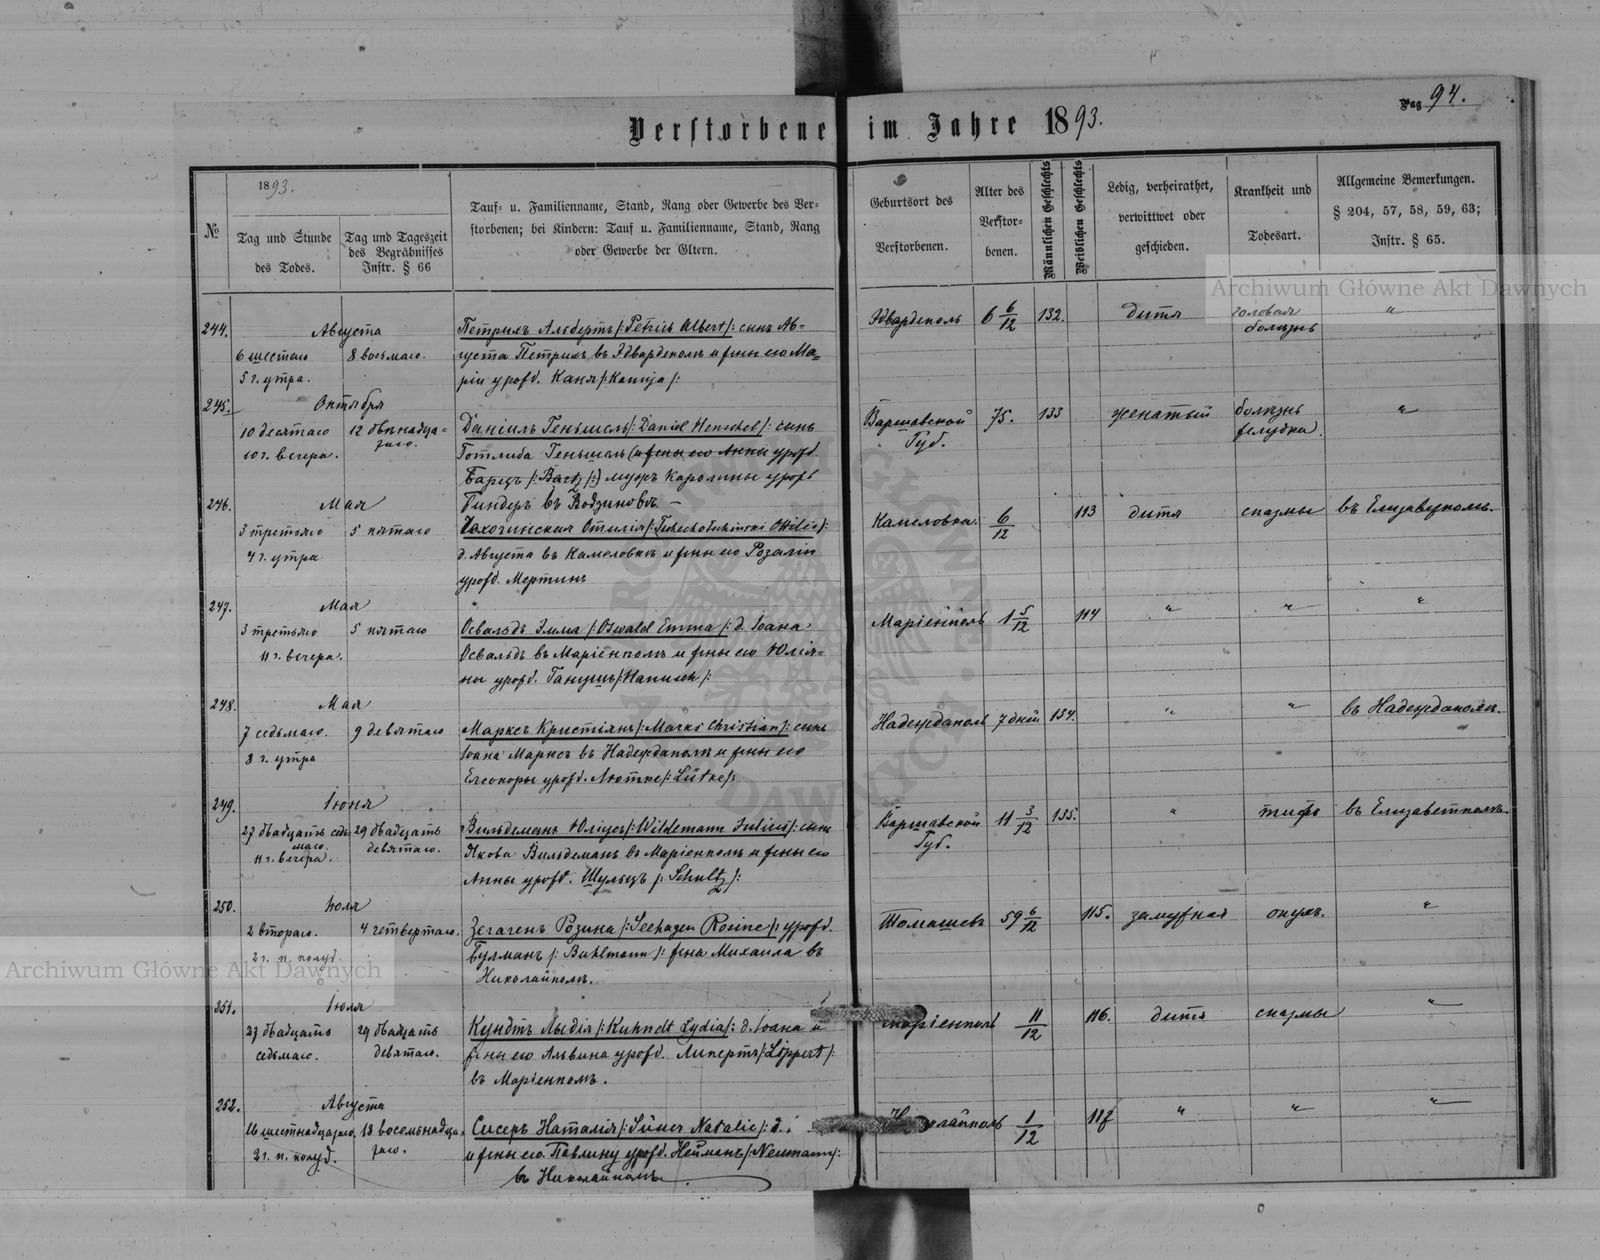 Pag 94.
Verstorbene im Jahre 1893.
№
1893.
Tag und Stunde
des Todes.
Tag und Tageszeit
des Begräbnisses
Instr. § 66
Tauf- u. Familienname, Stand, Rang oder Gewerbe des Ver-
storbenen; bei Kindern: Tauf u. Familienname, Stand, Rang
oder Gewerbe der Eltern.
Geburtsort des
Verstorbenen.
Alter des
Verstor-
benen.
Männlichen Geschlechts
Weiblichen Geschlechts
Ledig, verheirathet,
verwittwet oder
geschieden.
Krankheit und
Todesart.
Allgemeine Bemerkungen.
§ 204, 57, 58, 59, 63;
Instr. § 65.
244. Августа
6 шестаго 8 восьмаго.
5 г. утра.
Петрихъ Альбертъ /: Petrich Albert /: сынъ Ав-
густа Петрихъ въ Эдвардполѣ и жены его Ма-
ріи урожд. Каня /: Kannja /:
Эдвардполь 6 6/12 132. дитя головая „
болѣзнь
245. Октября
10 десятаго 12 двѣнадца-
10 г. вечера. таго.
Даніилъ Геньшель /: Daniel Henschel /: сынъ
Готлиба Геньшель (и жены его Анны урожд.
Барцъ /: Bartz /:) мужъ Каролины урожд
Биндеръ въ
Варшавской 75. 133 женатый болѣзнь „
Губ. желудка.
246. Мая
3 третьяго 5 пятаго
4 г. утра
Отилія Ottilie /:
д. Августа въ Камеловкѣ и жены его Розаліи
урожд. Мертинъ
Камеловка. 6/12 113 дитя спазмы въ
247. Мая
3 третьяго 5 пятаго
11 г. вечера.
Освальдъ Эмма /: Oswald Emma /: д. Іоана
Освальдъ въ Маріенполѣ и жены его Юлія-
ны урожд. Ганушъ /: Hanisch /:
Маріенполь 1 5/12 114 „ „ „
248. Мая
7 седьмаго. 9 девятаго
8 г. утра
Марксъ Кристіянъ /: Marks Christian /: сынъ
Іоана Марксъ въ Надеждаполѣ и жены его
Елеоноры урожд. Лютке /: Lütke /:
Надеждаполь 7 дней 134. „ „ въ Надеждаполѣ.
249. Іюня
27 двадцать седь- 29 двадцать
маго. девятаго.
11 г. вечера.
Вильдеманъ Юліусъ /: Wildemann Julius /: сынъ
Якова Вильдеманъ въ Маріенполѣ и жены его
Анны урожд. Шульцъ /: Schultz /:
Варшавской 11 3/12 135. „ тифъ въ Елизаветполѣ.
Губ.
250. Іюля
2 втораго. 4 четвертаго.
2 г. п. полуд.
Зегагенъ Розина /: Seehagen Rosine /: урожд.
Булманъ /: Buhlmann /: жена Михаила въ
Николайполѣ.
Томашевъ 59 6/12 115. замужняя опухъ. „
251. Іюля
27 двадцать 29 двадцать
седьмаго. девятаго.
Кундтъ Лыдія /: Kuhndt Lydia /: д. Іоана и
жены его Альвина урожд. Липертъ /: Lippert /:
въ Маріенполѣ.
Маріенполь 11/12 116. дитя спазмы „
252. Августа
16 шестнадцатаго 18 восемьнадца-
2 г. п. полуд. таго.
Наталія Natalie /: д.
и жены его Павлину урожд. Нейманъ /: Neumann /:
въ Николайполѣ
Николайполь 1/12 117 „ „ „
Archiwum Główne Akt Dawnych
Archiwum Główne Akt Dawnych